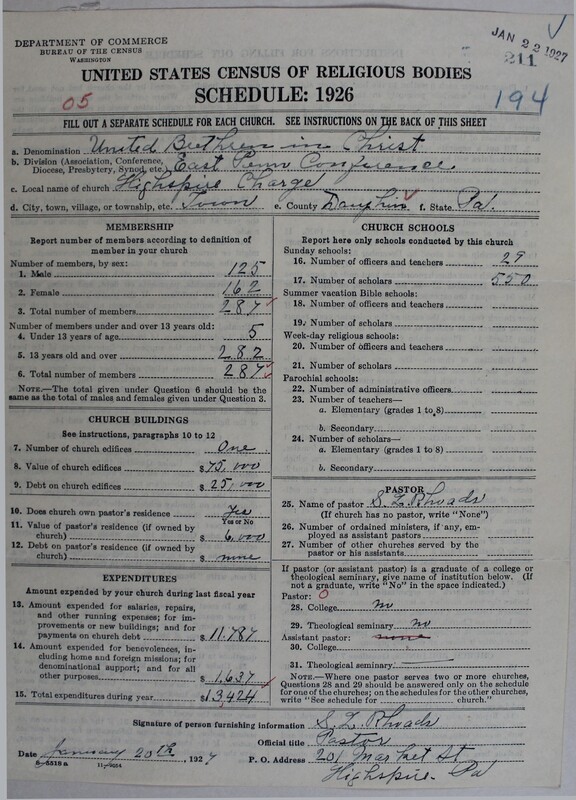 DEPARTMENT OF COMMERCE
BUREAU OF THE CENSUS
WASHINGTON
JAN 22 1927
211
UNITED STATES CENSUS OF RELIGIOUS BODIES
SCHEDULE: 1926
05
194
FILL OUT A SEPARATE SCHEDULE FOR EACH CHURCH. SEE INSTRUCTIONS ON THE BACK OF THIS SHEET
a. Denomination United Brethren in Christ
b. Division (Association, Conference, Diocese, Presbytery, Synod, etc.) East Penn Conference
c. Local name of church Highspire Charge
d. City, town, village, or township, etc. Town e. County Dauphin f. State Pa.
MEMBERSHIP
Report number of members according to definition of member in your church
Number of members, by sex:
1. Male 125
2. Female 162
3. Total number of members 287
Number of members under and over 13 years old:
4. Under 13 years of age 5
5. 13 years old and over 282
6. Total number of members 287
NOTE.—The total given under Question 6 should be the same as the total of males and females given under Question 3.
CHURCH BUILDINGS
See instructions, paragraphs 10 to 12
7. Number of church edifices One
8. Value of church edifices $75,000
9. Debt on church edifices $25,000
10. Does church own pastor's residence? Yes
Yes or No
11. Value of pastor's residence (if owned by church) $6,000
12. Debt on pastor's residence (if owned by church) $ none
EXPENDITURES
Amount expended by your church during last fiscal year
13. Amount expended for salaries, repairs, and other running expenses; for improvements or new buildings; and for payments on church debt $11,787
14. Amount expended for benevolences, including home and foreign missions; for denominational support; and for all other purposes $1,637
15. Total expenditures during year $13,424
CHURCH SCHOOLS
Report here only schools conducted by this church
Sunday schools:
16. Number of officers and teachers 29
17. Number of scholars 550
Summer vacation Bible schools:
18. Number of officers and teachers
19. Number of scholars
Week-day religious schools:
20. Number of officers and teachers
21. Number of scholars
Parochial schools:
22. Number of administrative officers
23. Number of teachers—
a. Elementary (grades 1 to 8)
b. Secondary
24. Number of scholars—
a. Elementary (grades 1 to 8)
b. Secondary
PASTOR
25. Name of pastor S. L. Rhoads
(If church has no pastor, write "None")
26. Number of ordained ministers, if any, employed as assistant pastors
27. Number of other churches served by the pastor or his assistants
If pastor (or assistant pastor) is a graduate of a college or theological seminary, give name of institution below. (If not a graduate, write "No" in the space indicated.)
Pastor: 0
28. College no
29. Theological seminary no
Assistant pastor: none
30. College
31. Theological seminary
NOTE.—Where one pastor serves two or more churches, Questions 28 and 29 should be answered only on the schedule for one of the churches; on the schedules for the other churches, write "See schedule for ........ church."
Signature of person furnishing information S. L. Rhoads
Official title Pastor
Date January 20th, 1927 P. O. Address 201 Market St
Highspire Pa